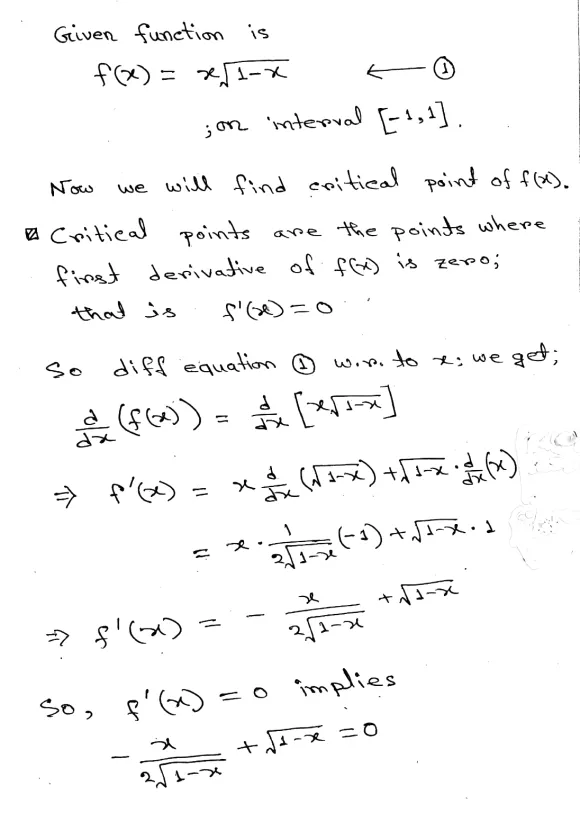 Given function is
f(x) = x√(1-x) ← ①
; on interval [-1,1].
Now we will find critical point of f(x).
Critical points are the points where
first derivative of f(x) is zero;
that is f'(x) = 0
So diff equation ① w.r. to x: we get;
d/dx (f(x)) = d/dx [x√(1-x)]
⇒ f'(x) = x d/dx (√(1-x)) + √(1-x) · d/dx (x)
= x · 1/(2√(1-x)) (-1) + √(1-x) · 1
⇒ f'(x) = - x/(2√(1-x)) + √(1-x)
So, f'(x) = 0 implies
- x/(2√(1-x)) + √(1-x) = 0